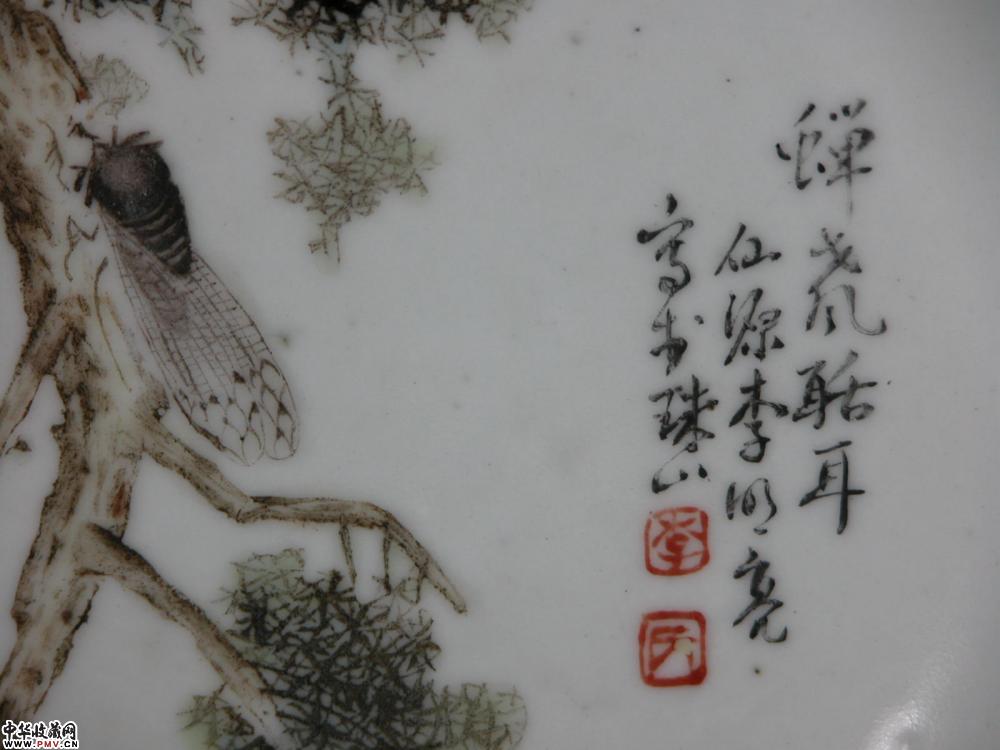 蝉聒耳
仙源李明亮
写於珠山
李
中华收藏网
WWW.PMV.CN